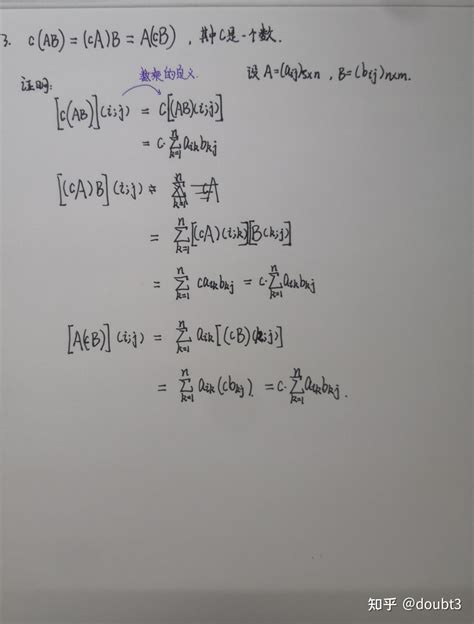 3. c(AB)=(cA)B=A(cB),其中C是一个数.
数乘的定义. 设A=(aij)s×n, B=(bij)n×m.
证明:
[c(AB)](i;j) = c[(AB)(i;j)]
= c·∑_{k=1}^{n} aik bkj
[(cA)B](i;j) = 
= ∑_{k=1}^{n} [(cA)(i;k)][B(k;j)]
= ∑_{k=1}^{n} caik bkj = c·∑_{k=1}^{n} aik bkj
[A(cB)](i;j) = ∑_{k=1}^{n} aik[(cB)(k;j)]
= ∑_{k=1}^{n} aik(cbkj) = c·∑_{k=1}^{n} aik bkj.
知乎 @doubt3